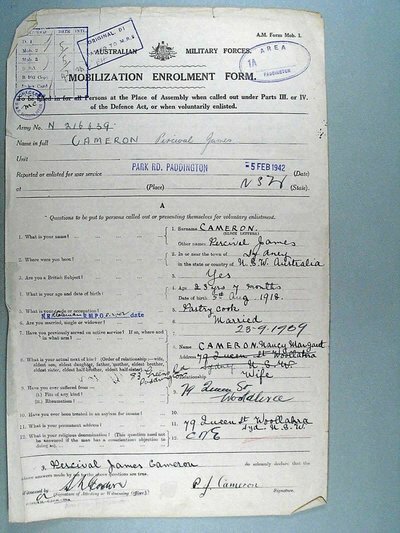 A.M. Form Mob. 1.
ORIGINAL
AUSTRALIAN MILITARY FORCES.
AREA
1A
PADDINGTON
MOBILIZATION ENROLMENT FORM.
To be filled in for all Persons at the Place of Assembly when called out under Parts III. or IV.
of the Defence Act, or when voluntarily enlisted.
Army No. N
Name in full CAMERON Percival James
Unit
PARK RD. PADDINGTON -5 FEB 1942
Reported or enlisted for war service (Date)
at (Place) NSW (State).
A
Questions to be put to persons called out or presenting themselves for voluntary enlistment.
1. What is your name? 1. Surname CAMERON
(BLOCK LETTERS)
Other names Percival James
2. Where were you born? 2. In or near the town of Sydney
in the state or country of N.S.W. Australia
3. Are you a British Subject? 3. Yes
4. What is your age and date of birth? 4. Age 23 yrs 7 months
Date of birth 1918
5. What is your trade or occupation? 5. Pastry cook
6. Are you married, single or widower? 6. Married
date 23-9-1939
7. Have you previously served on active service? If so, where and in what arm? 7.
8. Who is your actual next of kin? (Order of relationship—wife, eldest son, eldest daughter, father, mother, eldest brother, eldest sister, eldest half-brother, eldest half-sister) 8. Name CAMERON Nancy Margaret
Address 79 Queen St Woollahra
Sydney N.S.W.
Relationship Wife
Paddington
9. Have you ever suffered from— 9. 79 Queen St
(i) Fits of any kind Woollahra
(ii) Rheumatism
10. Have you ever been treated in an asylum for insane?
11. What is your permanent address? 11. 79 Queen St Woollahra
Syd N.S.W.
12. What is your religious denomination? (This question need not be answered if the man has a conscientious objection to doing so). 12. C of E
I, Percival James Cameron do solemnly declare that the
above answers made by me to the above questions are true.
Witnessed by P J Cameron
Signature of Attesting or Witnessing Officer. Signature.